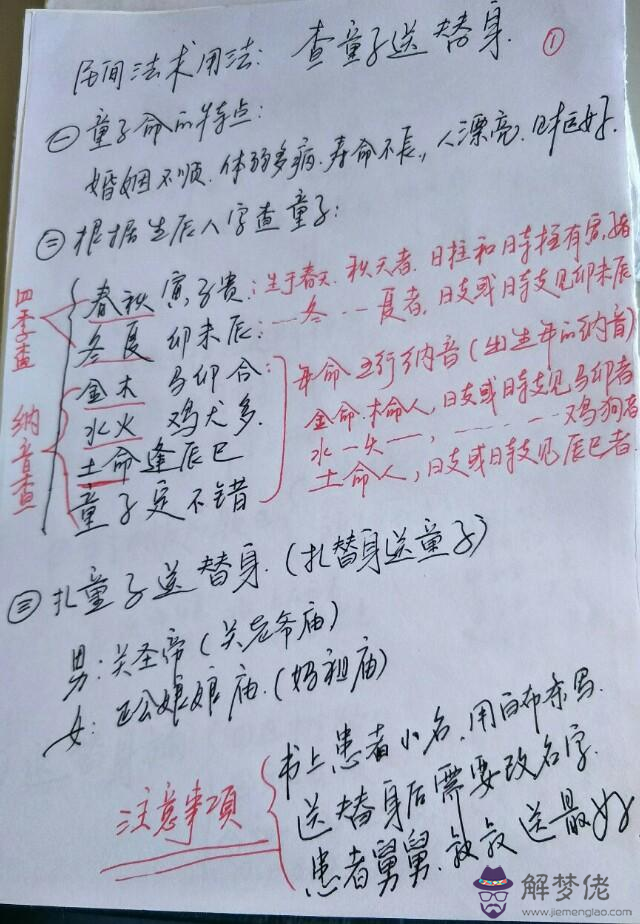 民间法术用法: 查童子送替身. ①
㊀童子命的特点:
婚姻不顺. 体弱多病. 寿命不长, 人漂亮.
㊁根据生辰八字查童子:
四季查
春秋 寅子贵: 生于春天. 秋天者. 日柱和时柱有寅, 子者
冬夏 卯未辰: 一冬一一夏者, 日支或日时支见卯未辰
纳音查
金木 马卯合: 年命五行纳音 (出生年的纳音)
水火 鸡犬多. 金命. 木命人, 日支或时支见马卯者
土命逢辰巳 水一火一, 鸡狗者
童子定不错 土命人, 日支或时支见辰巳者.
㊂扎童子送替身. (扎替身送童子)
男: 关圣帝 (关老爷庙)
女: 娘娘庙. (妈祖庙)
注意事項
书上患者小名, 用白布条写.
送替身后需要改名字.
患者舅舅. 叔叔送最好
解梦佬
www.jiemenglao.com